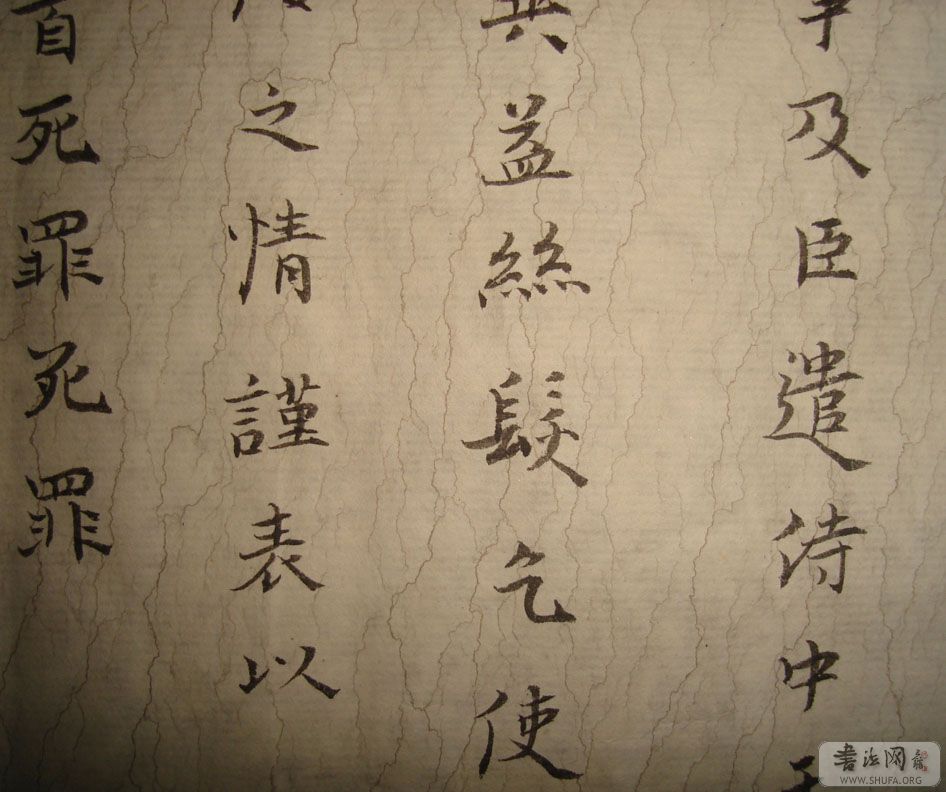 及臣遣侍中
益絲髮乞使
之情謹表以
首死罪死罪
書法网
WWW.SHUFA.ORG